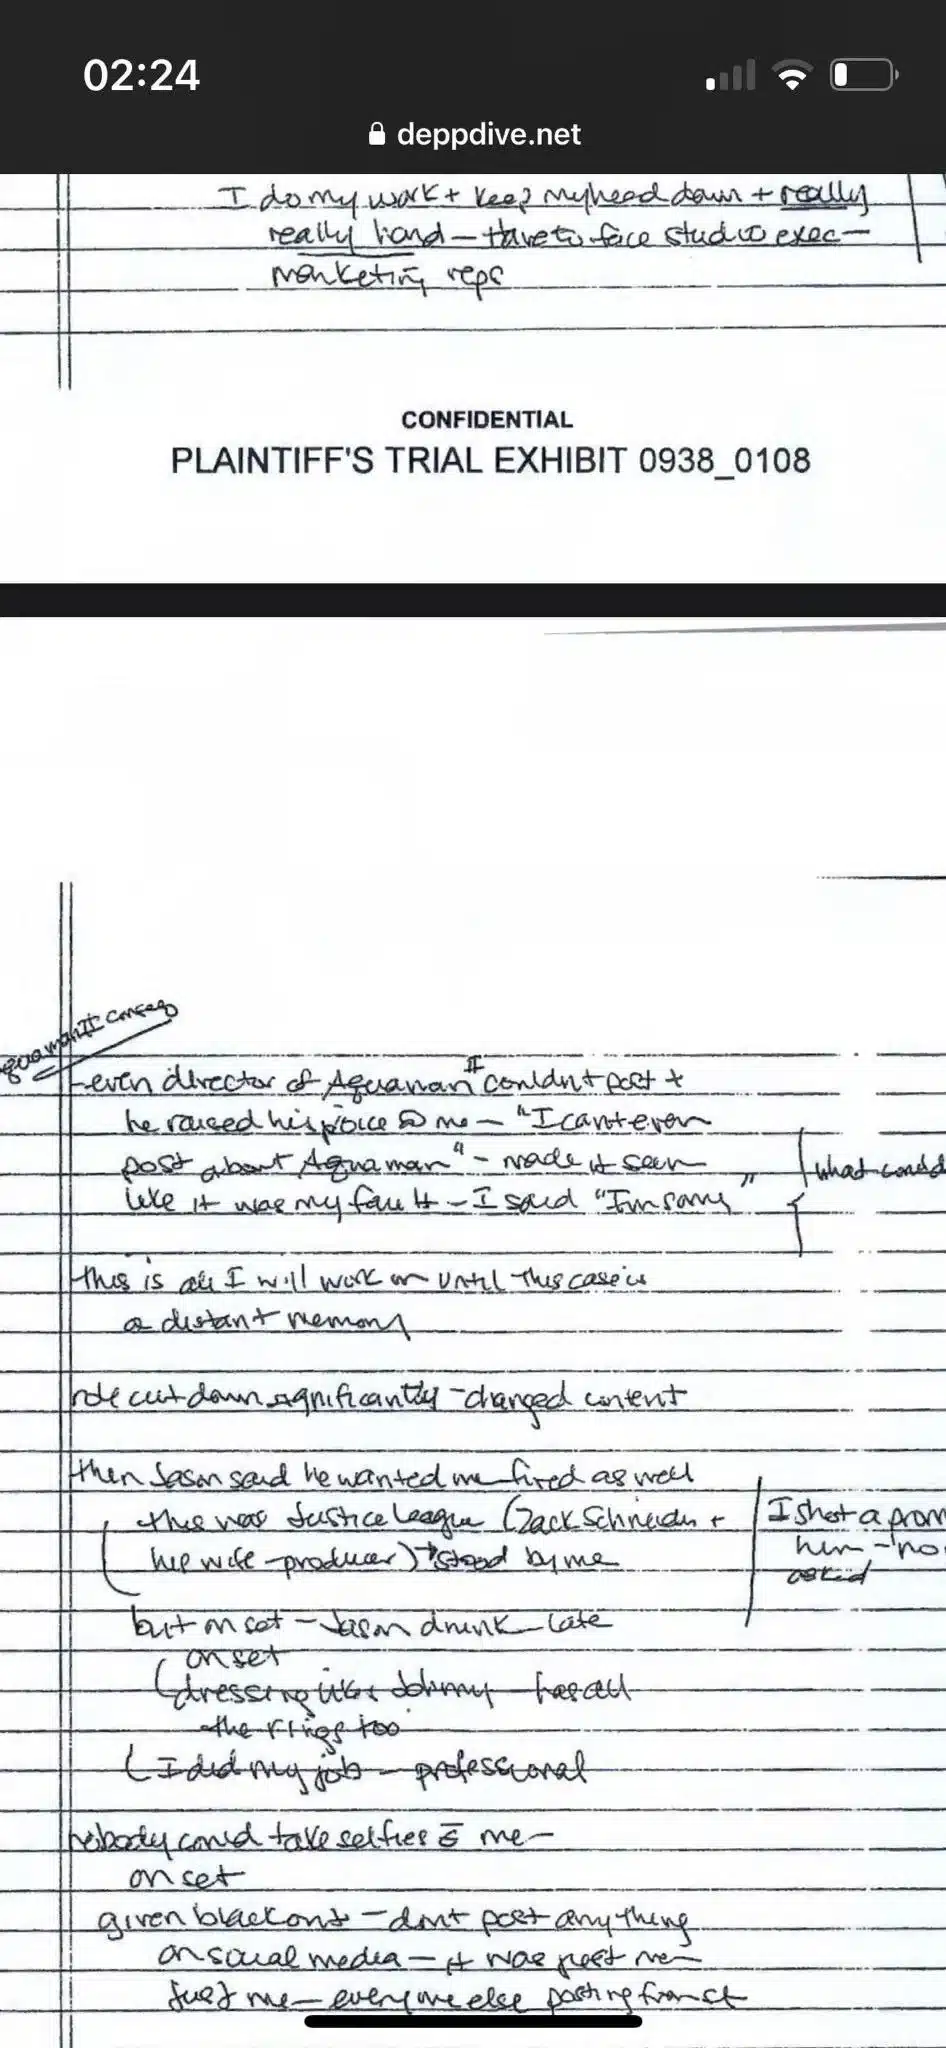 02:24
deppdive.net
I do my work + keep my head down + really
really hard — have to face studio exec —
marketing reps
CONFIDENTIAL
PLAINTIFF'S TRIAL EXHIBIT 0938_0108
quaman II conseq
- even director of Aquaman II couldn't post +
he raised his voice @ me — "I cant even
post about Aquaman" - made it seem
like it was my fault - I said "I'm sorry"
what could
this is all I will work on until this case is
a distant memory
role cut down significantly - changed content
then Jason said he wanted me fired as well
this was Justice League (Zack Schneider +
his wife - producer) → stood by me
I shot a prom
him - no
asked
but on set - Jason drunk - late
on set
(dressing like Johnny - has all
the rings too
(I did my job - professional
nobody could take selfies c̄ me -
on set
given blackout - dont post anything
on social media - it was just me
just me - everyone else posting from set